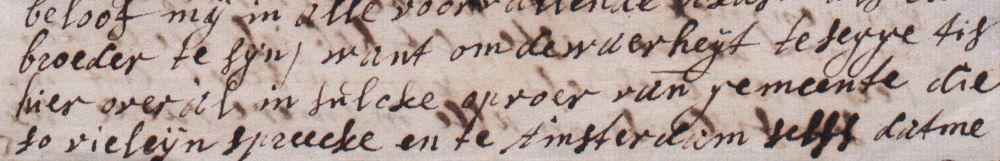 beloof mij in alle voorvallende als
broeder te sijn / want om de waerheijt te segge tis
hier over al in sulcke oproer van gemeente die
so vieleijn spreecke en te Amsterdam selfs datme